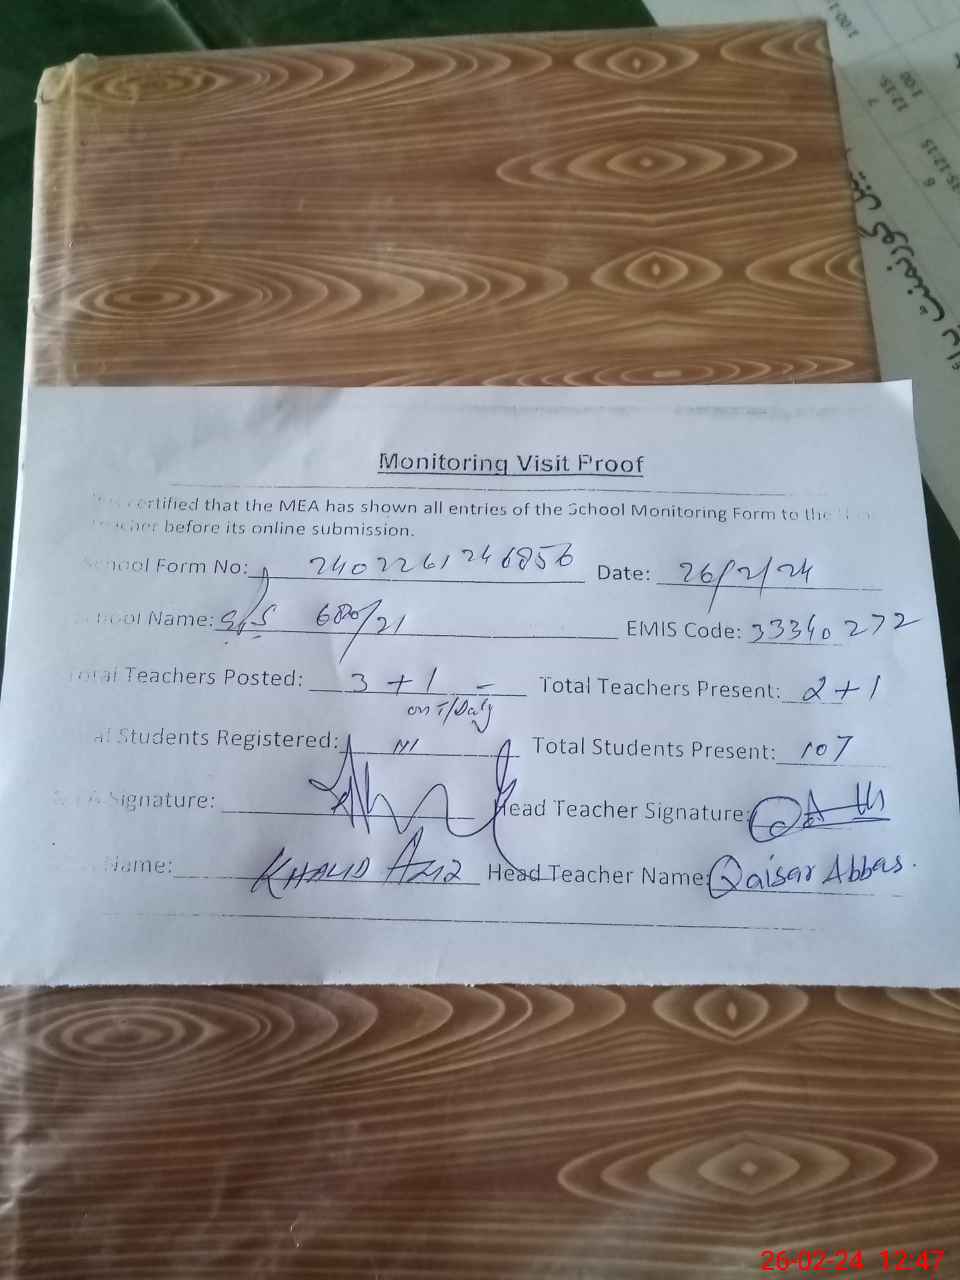 1:00
12:15-
1:00
7
15-12:15
6
گورنمنٹ
Monitoring Visit Proof
certified that the MEA has shown all entries of the School Monitoring Form to the
teacher before its online submission.
School Form No: 2402261246856 Date: 26/2/24
School Name: 680/21 EMIS Code: 33340272
Total Teachers Posted: 3 + 1 - Total Teachers Present: 2 + 1
on
al Students Registered: 111 Total Students Present: 107
Signature: Head Teacher Signature:
Name: KHALID AZIZ Head Teacher Name: Qaisar Abbas.
26-02-24 12:47